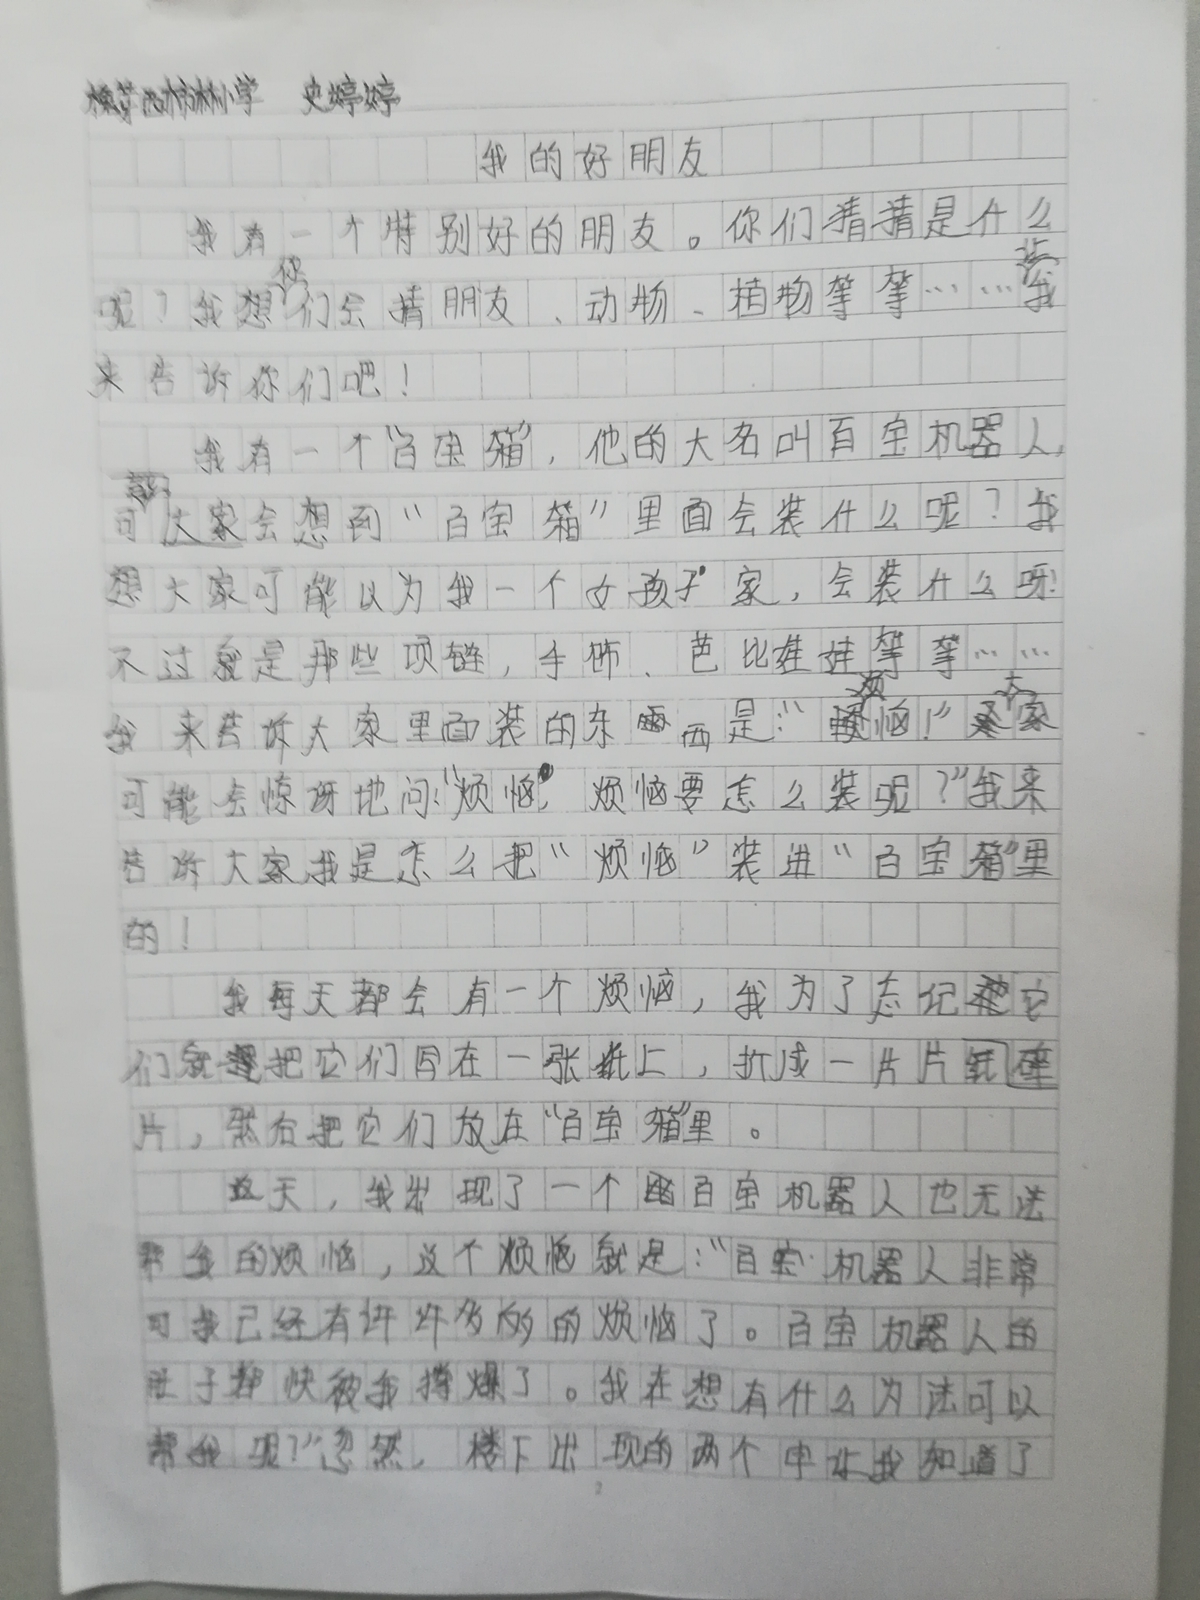 槐芽西柿林小学 史婷婷
我的好朋友
我有一个特别好的朋友。你们猜猜是什么
呢？我想你们会猜朋友、动物、植物等等……让我
来告诉你们吧！
我有一个“百宝箱”，他的大名叫百宝机器人，
可大家会想到“百宝箱”里面会装什么呢？我
想大家可能以为我一个女孩子家，会装什么呀！
不过就是那些项链，手饰、芭比娃娃等等……
我来告诉大家里面装的东西是：“烦恼！”大家
可能会惊讶地问：“烦恼，烦恼要怎么装呢？”我来
告诉大家我是怎么把“烦恼”装进“百宝箱”里
的！
我每天都会有一个烦恼，我为了忘记它
们就把它们写在一张纸上，折成一片片碎
片，然后把它们放在“百宝箱”里。
这天，我出现了一个百宝机器人也无法
帮我的烦恼，这个烦恼就是：“百宝机器人非常
可我已经有许许多多的烦恼了。百宝机器人的
肚子都快被我撑爆了。我在想有什么办法可以
帮我呢？”忽然，楼下出现的两个字让我知道了
2